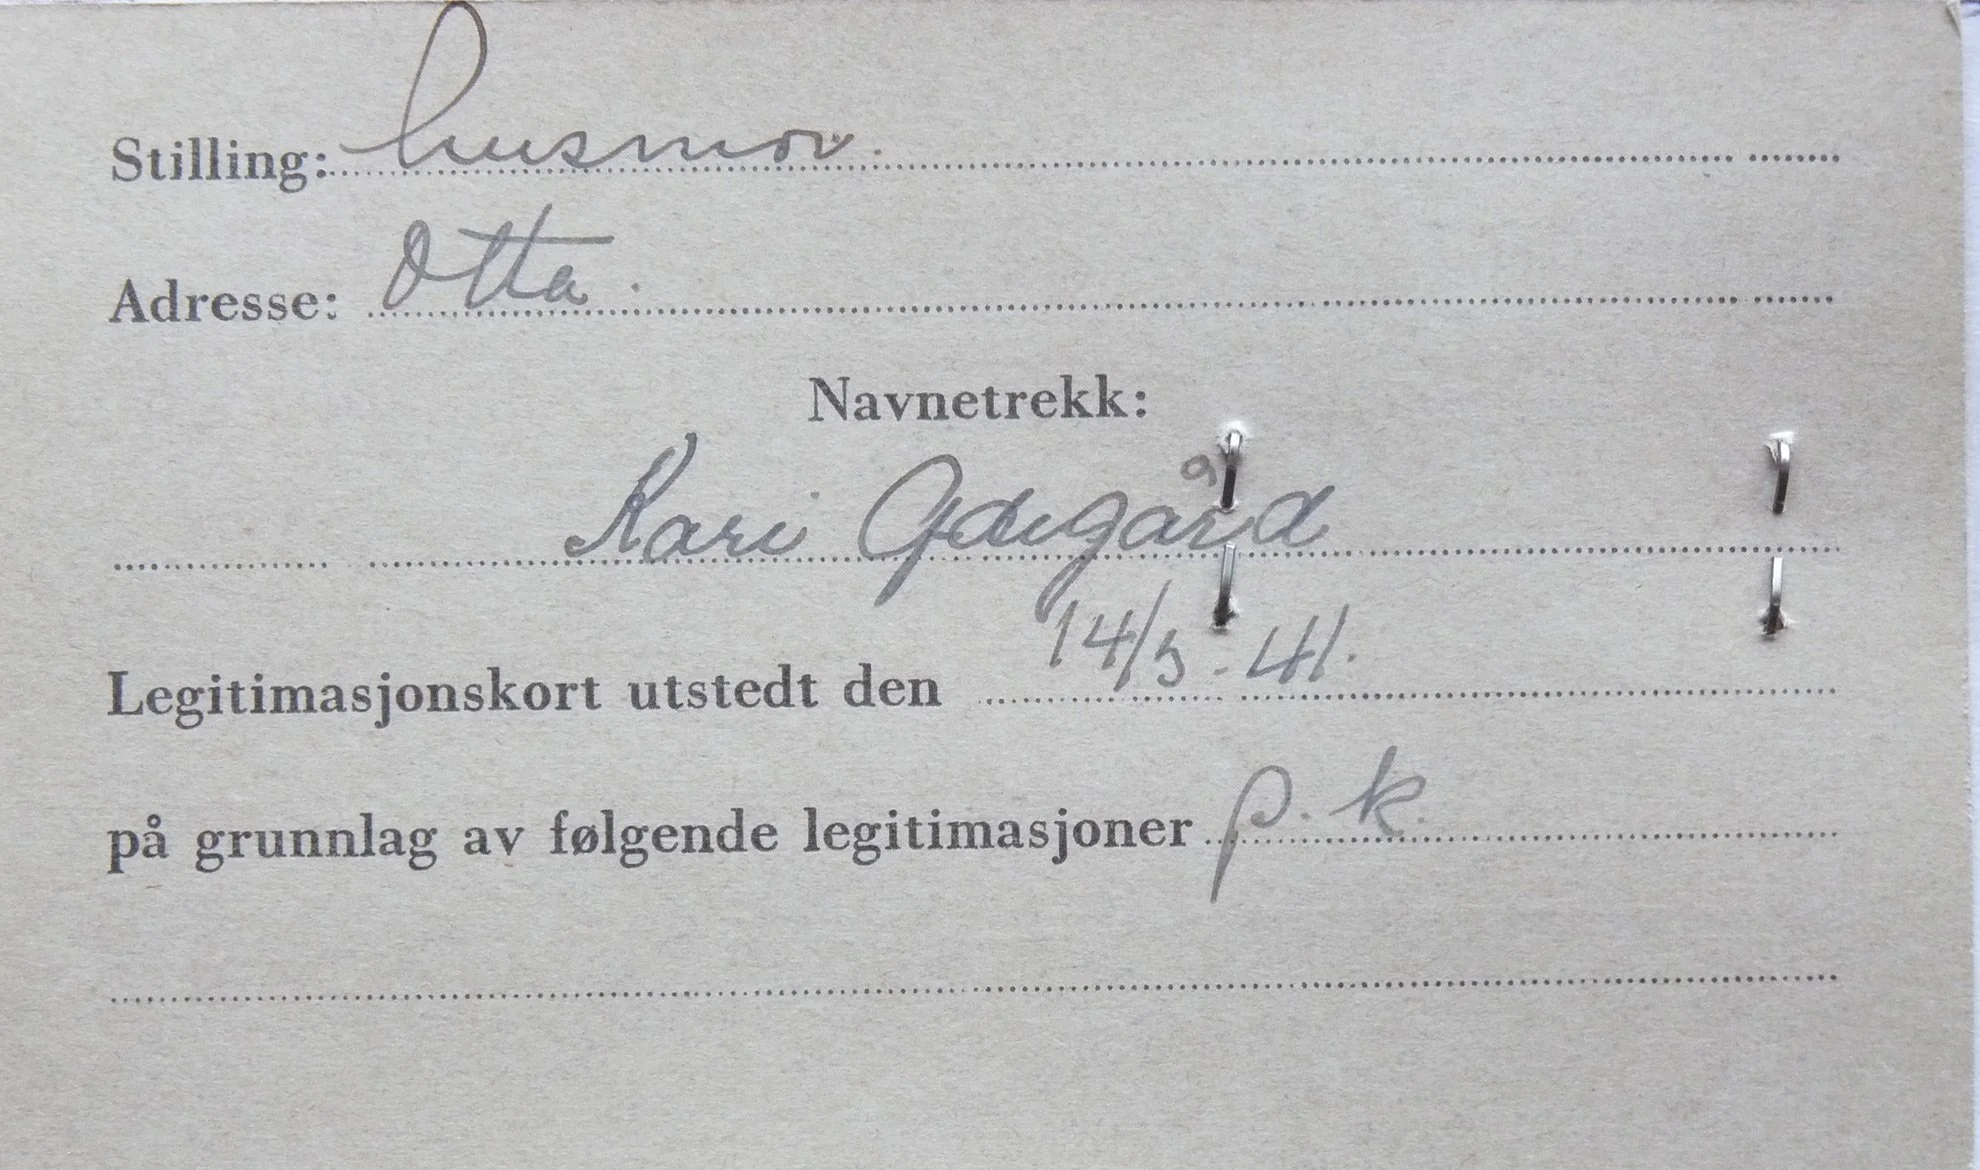 Stilling: husmor.
Adresse: Otta.
Navnetrekk:
Kari Ødegård
Legitimasjonskort utstedt den 14/5-41.
på grunnlag av følgende legitimasjoner p.k.